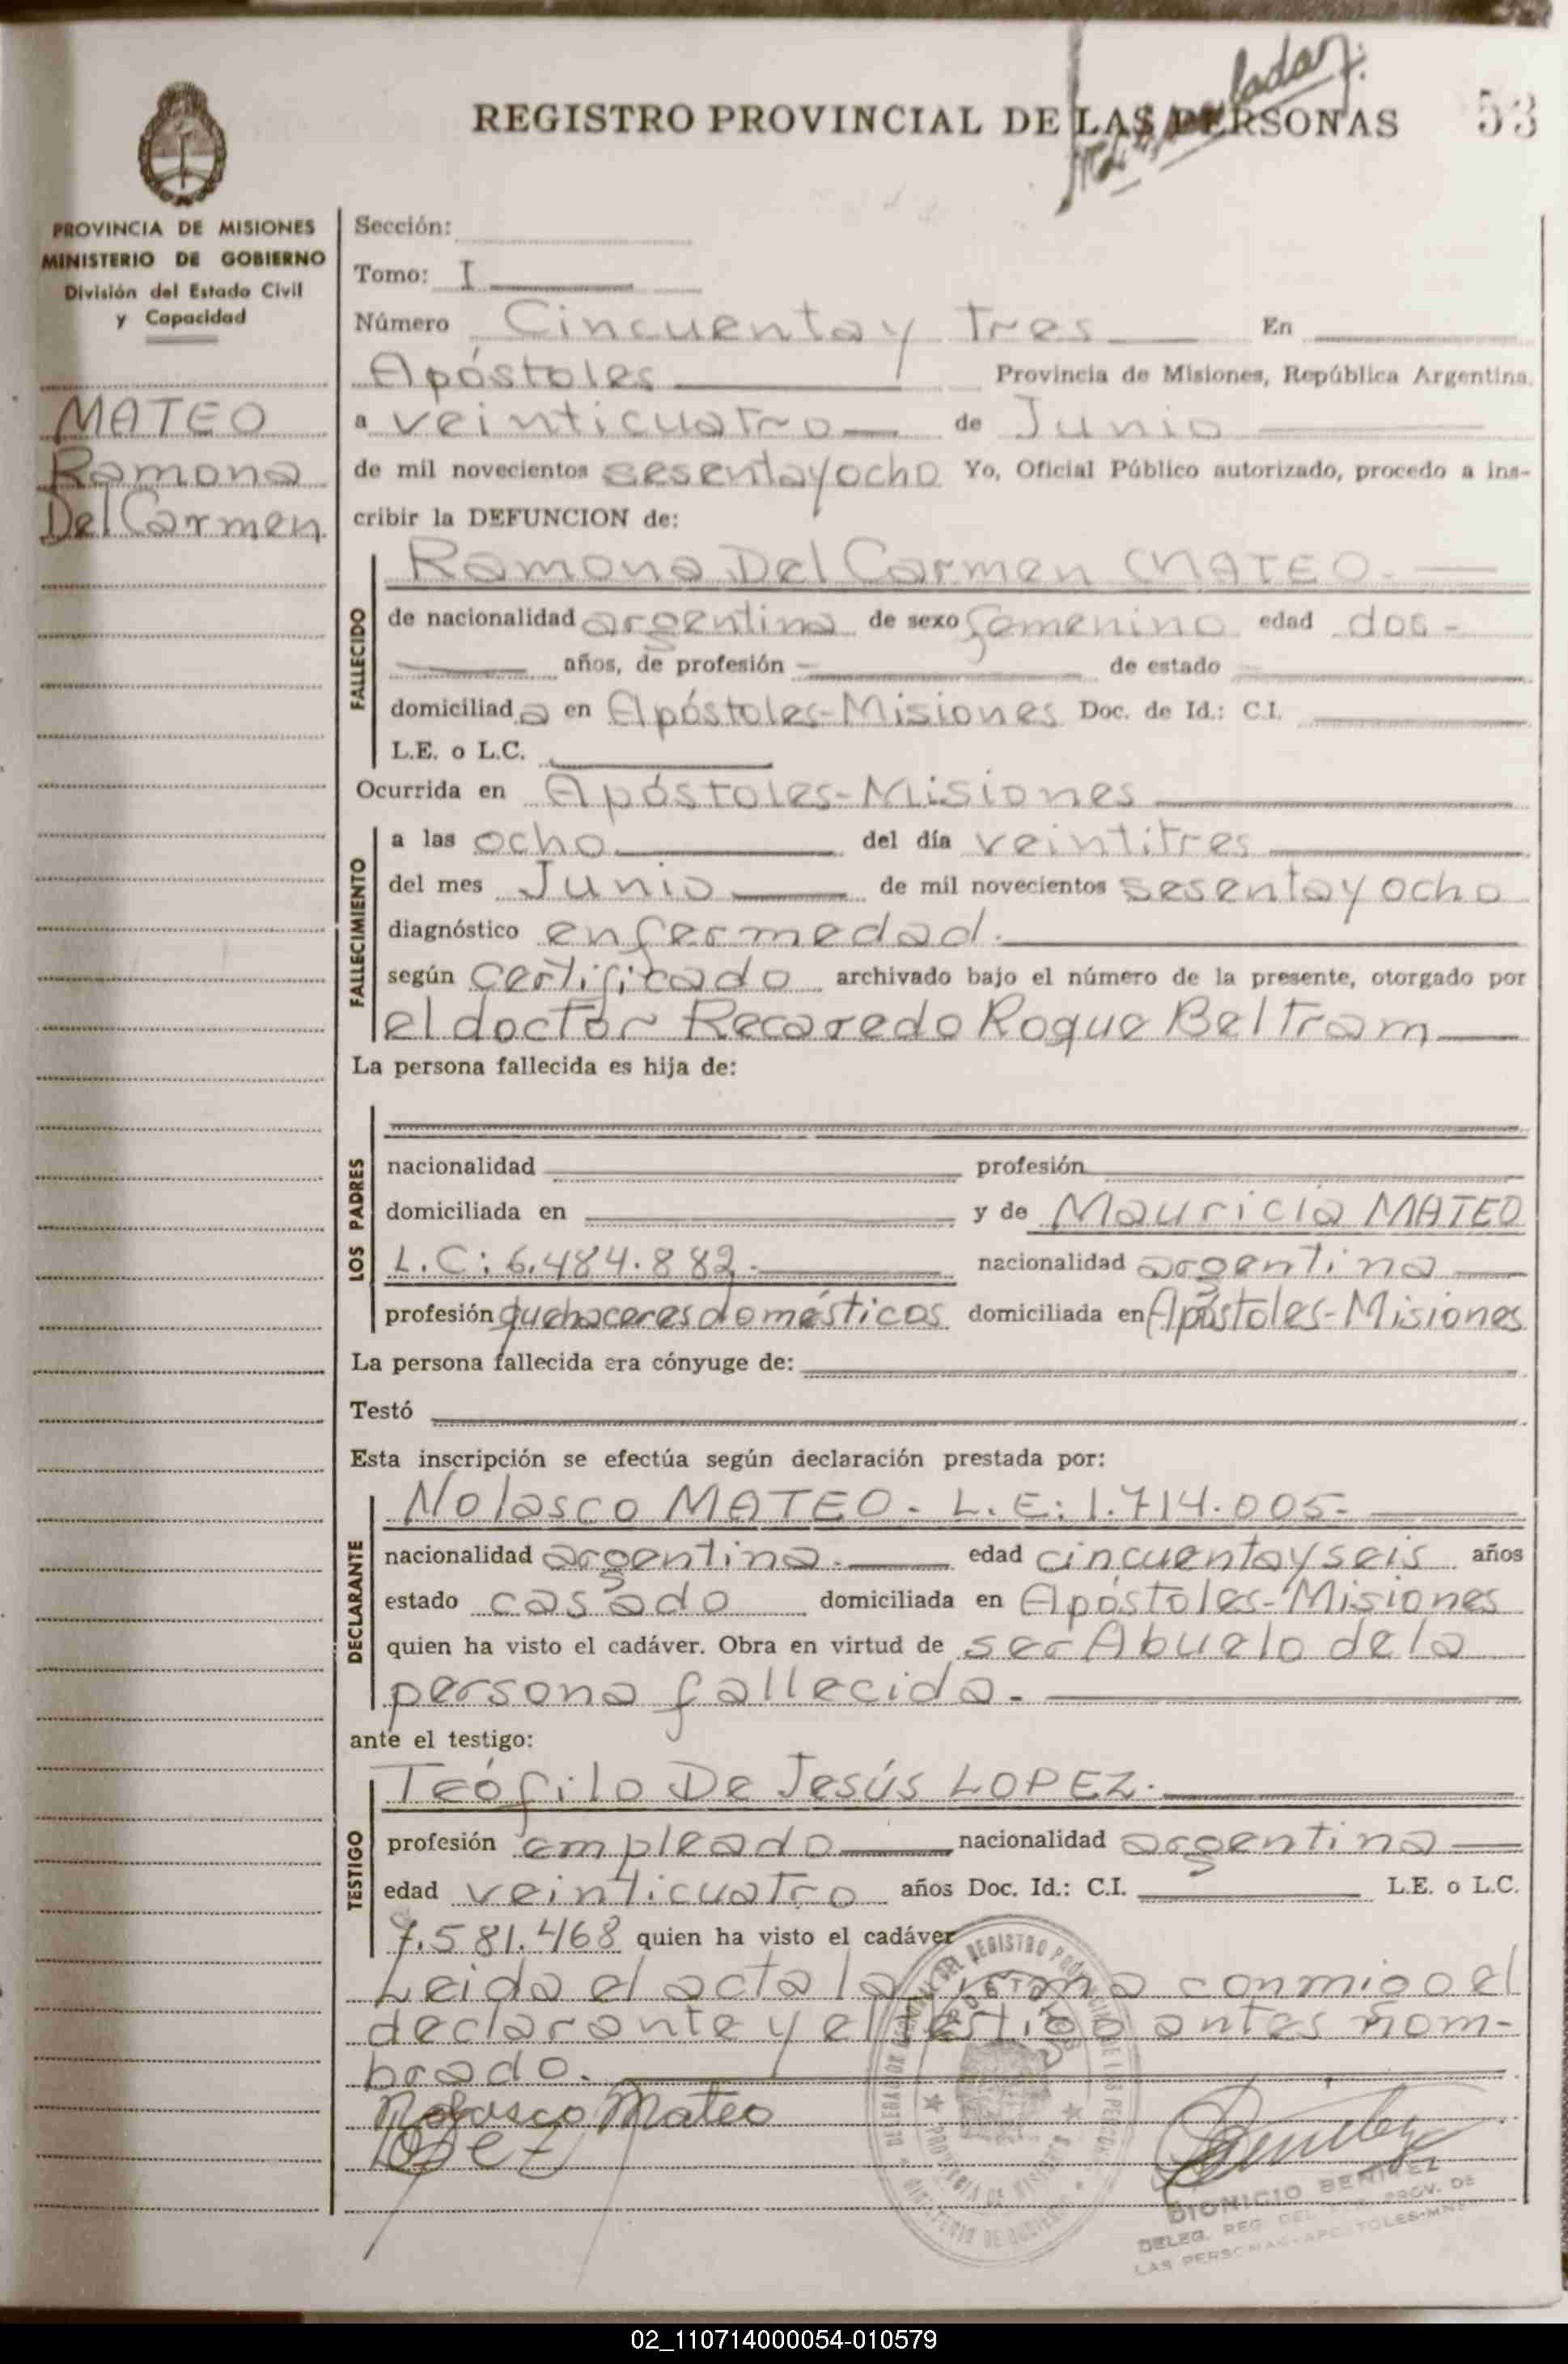 REGISTRO PROVINCIAL DE LAS PERSONAS
53
PROVINCIA DE MISIONES
MINISTERIO DE GOBIERNO
División del Estado Civil
y Capacidad
MATEO
Ramona
Del Carmen
Sección:
Tomo: I
Número Cincuenta y Tres En
Apóstoles Provincia de Misiones, República Argentina.
a veinticuatro de Junio
de mil novecientos sesenta y ocho Yo, Oficial Público autorizado, procedo a ins-
cribir la DEFUNCION de:
FALLECIDO
Ramona Del Carmen MATEO.
de nacionalidad argentina de sexo femenino edad dos -
años, de profesión - de estado
domiciliad a en Apóstoles-Misiones Doc. de Id.: C.I.
L.E. o L.C.
Ocurrida en Apóstoles-Misiones
FALLECIMIENTO
a las ocho del día veintitres
del mes Junio de mil novecientos sesenta y ocho
diagnóstico enfermedad.
según certificado archivado bajo el número de la presente, otorgado por
el doctor Recaredo Roque Beltram
La persona fallecida es hija de:
LOS PADRES
nacionalidad profesión
domiciliada en y de Mauricia MATEO
L.C: 6.484.882.- nacionalidad argentina
profesión quehaceres domésticos domiciliada en Apóstoles-Misiones
La persona fallecida era cónyuge de:
Testó
Esta inscripción se efectúa según declaración prestada por:
DECLARANTE
Nolasco MATEO. L.E: 1.714.005-
nacionalidad argentina. edad cincuenta y seis años
estado casado domiciliada en Apóstoles-Misiones
quien ha visto el cadáver. Obra en virtud de ser Abuelo de la
persona fallecida.
ante el testigo:
TESTIGO
Teófilo De Jesús LOPEZ.
profesión empleado nacionalidad argentina
edad veinticuatro años Doc. Id.: C.I. L.E. o L.C.
7.581.468 quien ha visto el cadáver
Leida el acta la firma conmigo el
declarante y el testigo antes nom-
brado.
Nolasco Mateo
Lopez
APOSTOLES
DIONICIO BENITEZ
DELEG. REG. DEL PROV. DE
LAS PERSONAS - APOSTOLES-MNES
02_110714000054-010579